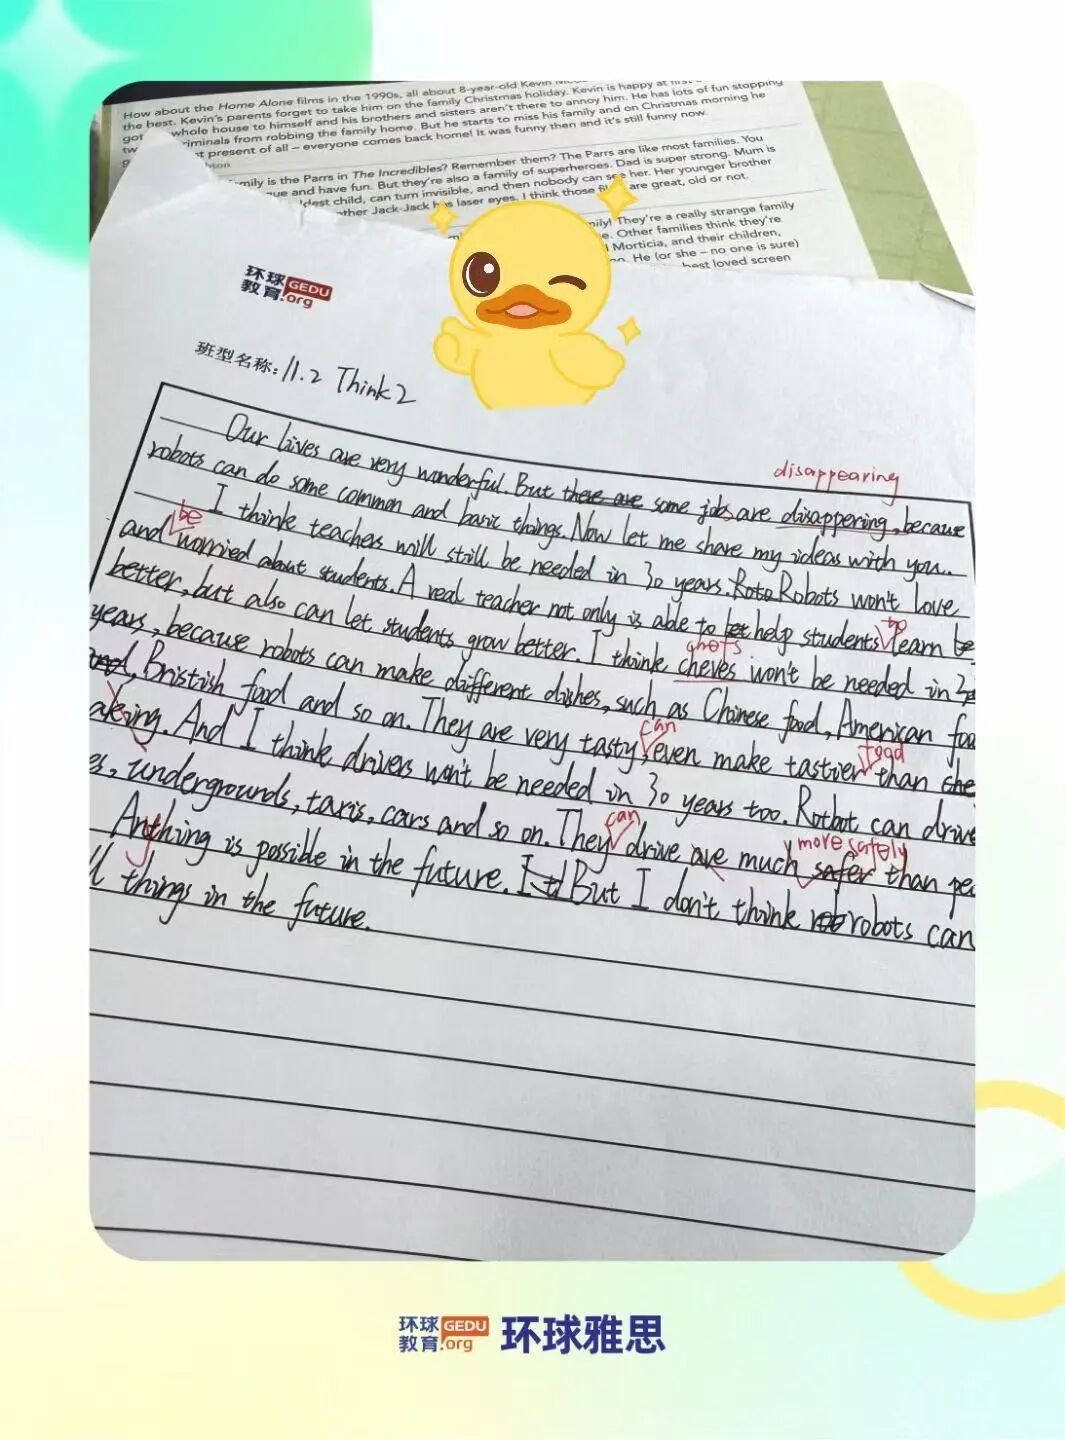 How about the Home Alone films in the 1990s, all about 8-year-old Kevin
the best. Kevin's parents forget to take him on the family Christmas holiday. Kevin is happy at first
got whole house to himself and his brothers and sisters aren't there to annoy him. He has lots of fun stopping
criminals from robbing the family home. But he starts to miss his family and on Christmas morning he
present of all – everyone comes back home! It was funny then and it's still funny now.
family is the Parrs in The Incredibles? Remember them? The Parrs are like most families. You
and have fun. But they're also a family of superheroes. Dad is super strong. Mum is
child, can turn invisible, and then nobody can see her. Her younger brother
Jack-Jack has laser eyes. I think those are great, old or not.
They're a really strange family
Other families think they're
Morticia, and their children,
He (or she – no one is sure)
best loved screen
环球教育 GEDU .org
班型名称: 11.2 Think 2
disappearing
Our lives are very wonderful. But there are some jobs are disappering, because
robots can do some common and basic things. Now let me share my ideas with you.
I think teachers will still be needed in 30 years. Robots won't love
be
and worried about students. A real teacher not only is able to let help students learn
to
better, but also can let students grow better. I think cheves won't be needed in
chefs
years, because robots can make different dishes, such as Chinese food, American
Bristish food and so on. They are very tasty, even make tastier than
can
food
aking. And I think drivers won't be needed in 30 years too. Rotbot can drive
es, undergrounds, taxis, cars and so on. They drive are much safer than
can
more safely
Anything is possible in the future. But I don't think robots can
ll things in the future.
环球教育 GEDU .org 环球雅思